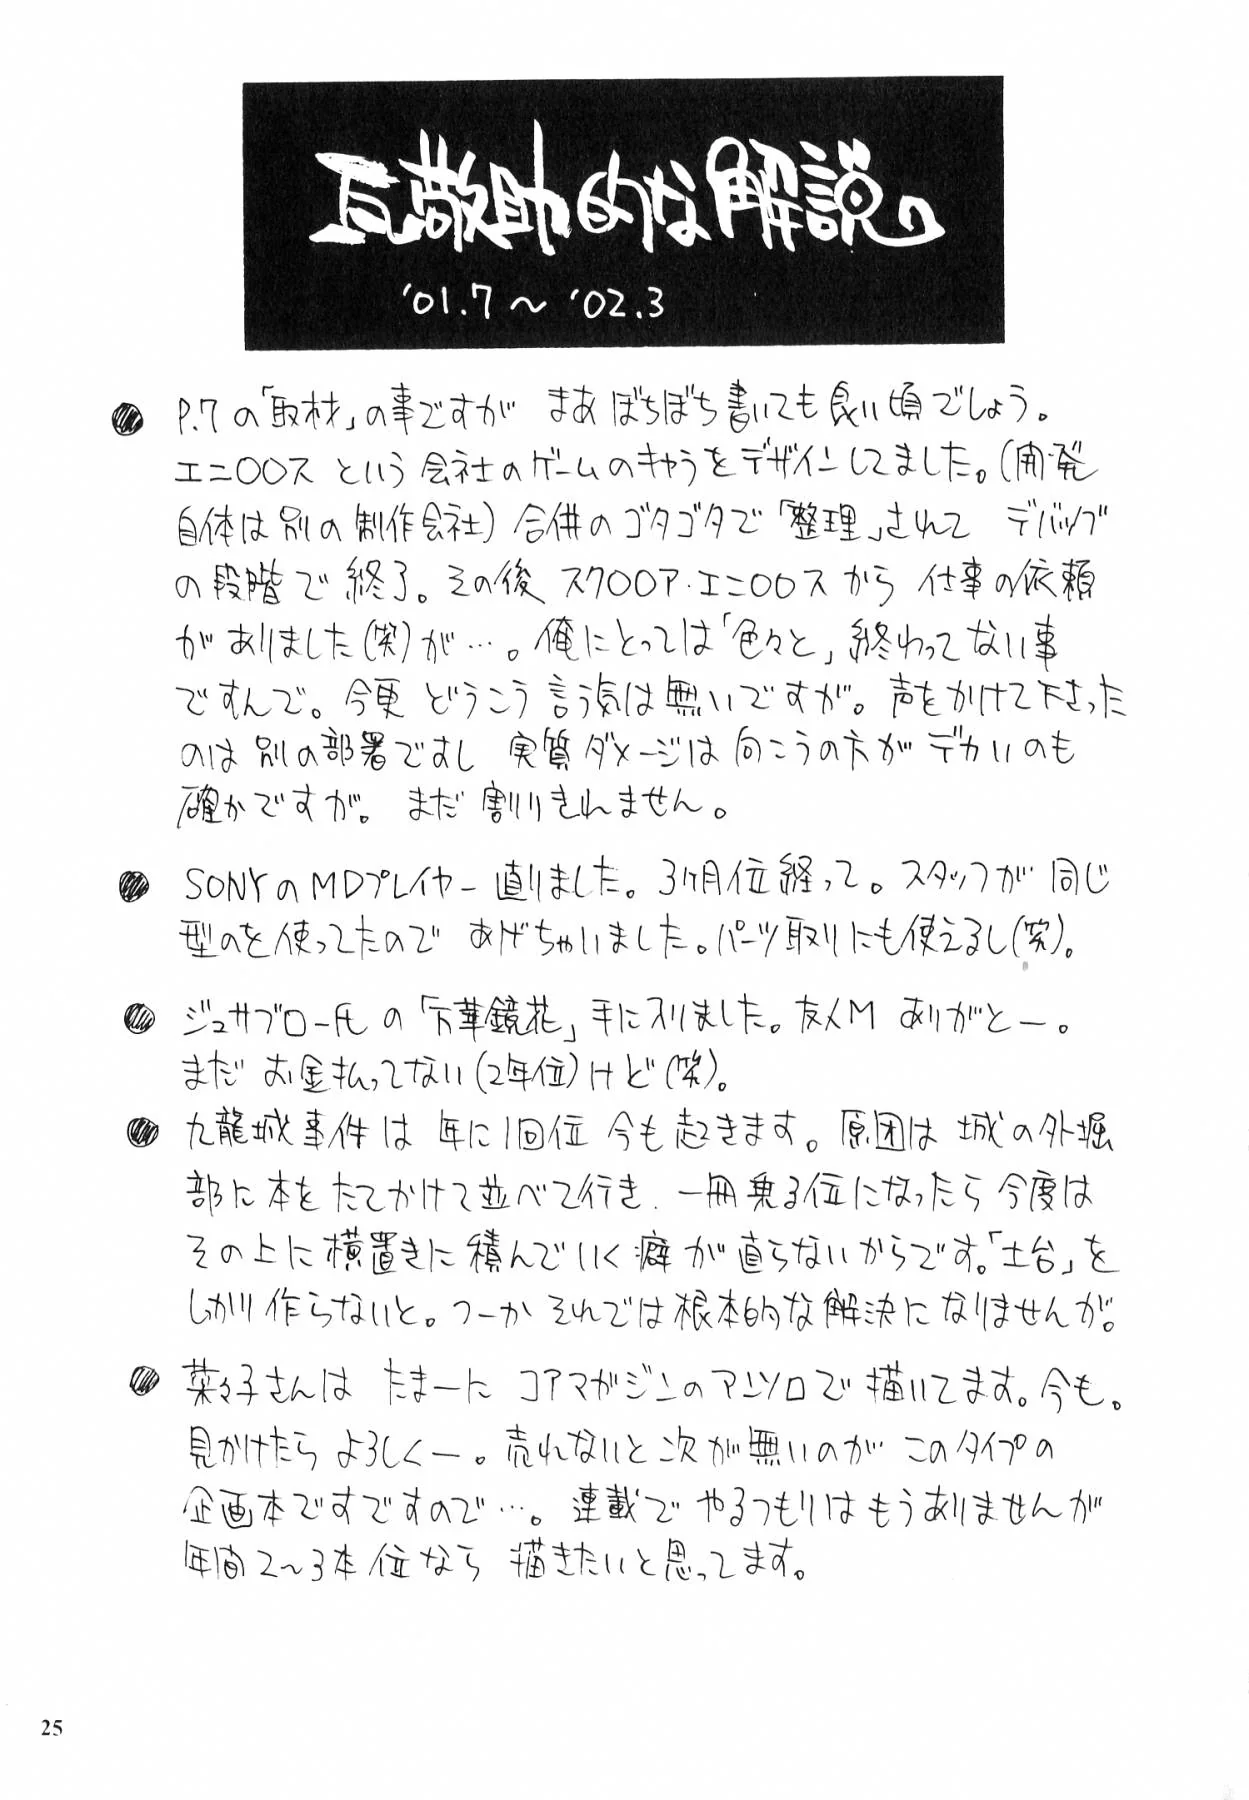 瓦敬助的な解説。
'01.7〜'02.3
P.7の「取材」の事ですが まあぼちぼち書いても良い頃でしょう。
エニ〇〇スという会社のゲームのキャラをデザインしてました。(開発
自体は別の制作会社)合併のゴタゴタで「整理」されて デバッグ
の段階で終了。その後 スク〇〇ア・エニ〇〇スから 仕事の依頼
がありました(笑)が…。俺にとっては「色々と」終わってない事
ですんで。今更どうこう言う気は無いですが。声をかけて下さった
のは別の部署ですし 実質ダメージは向こうの方がデカいのも
確かですが。 まだ割りきれません。
SONYのMDプレイヤー直りました。3ヶ月位経って。スタッフが同じ
型のを使ってたので あげちゃいました。パーツ取りにも使えるし(笑)。
ジュサブロー氏の「万華鏡花」手に入りました。友人M ありがとー。
まだお金払ってない(2年位)けど(笑)。
九龍城事件は 年に1回位 今も起きます。原因は城の外堀
部に本をたてかけて並べて行き、一冊乗る位になったら今度は
その上に横置きに積んでいく癖が直らないからです。「土台」を
しっかり作らないと。つーかそれでは根本的な解決になりませんが。
菜々子さんは たまーに コアマガジンのアンソロで描いてます。今も。
見かけたら よろしくー。売れないと次が無いのが このタイプの
企画本ですですので…。連載で やるつもりはもうありませんが
年間2〜3本位なら 描きたいと思ってます。
25